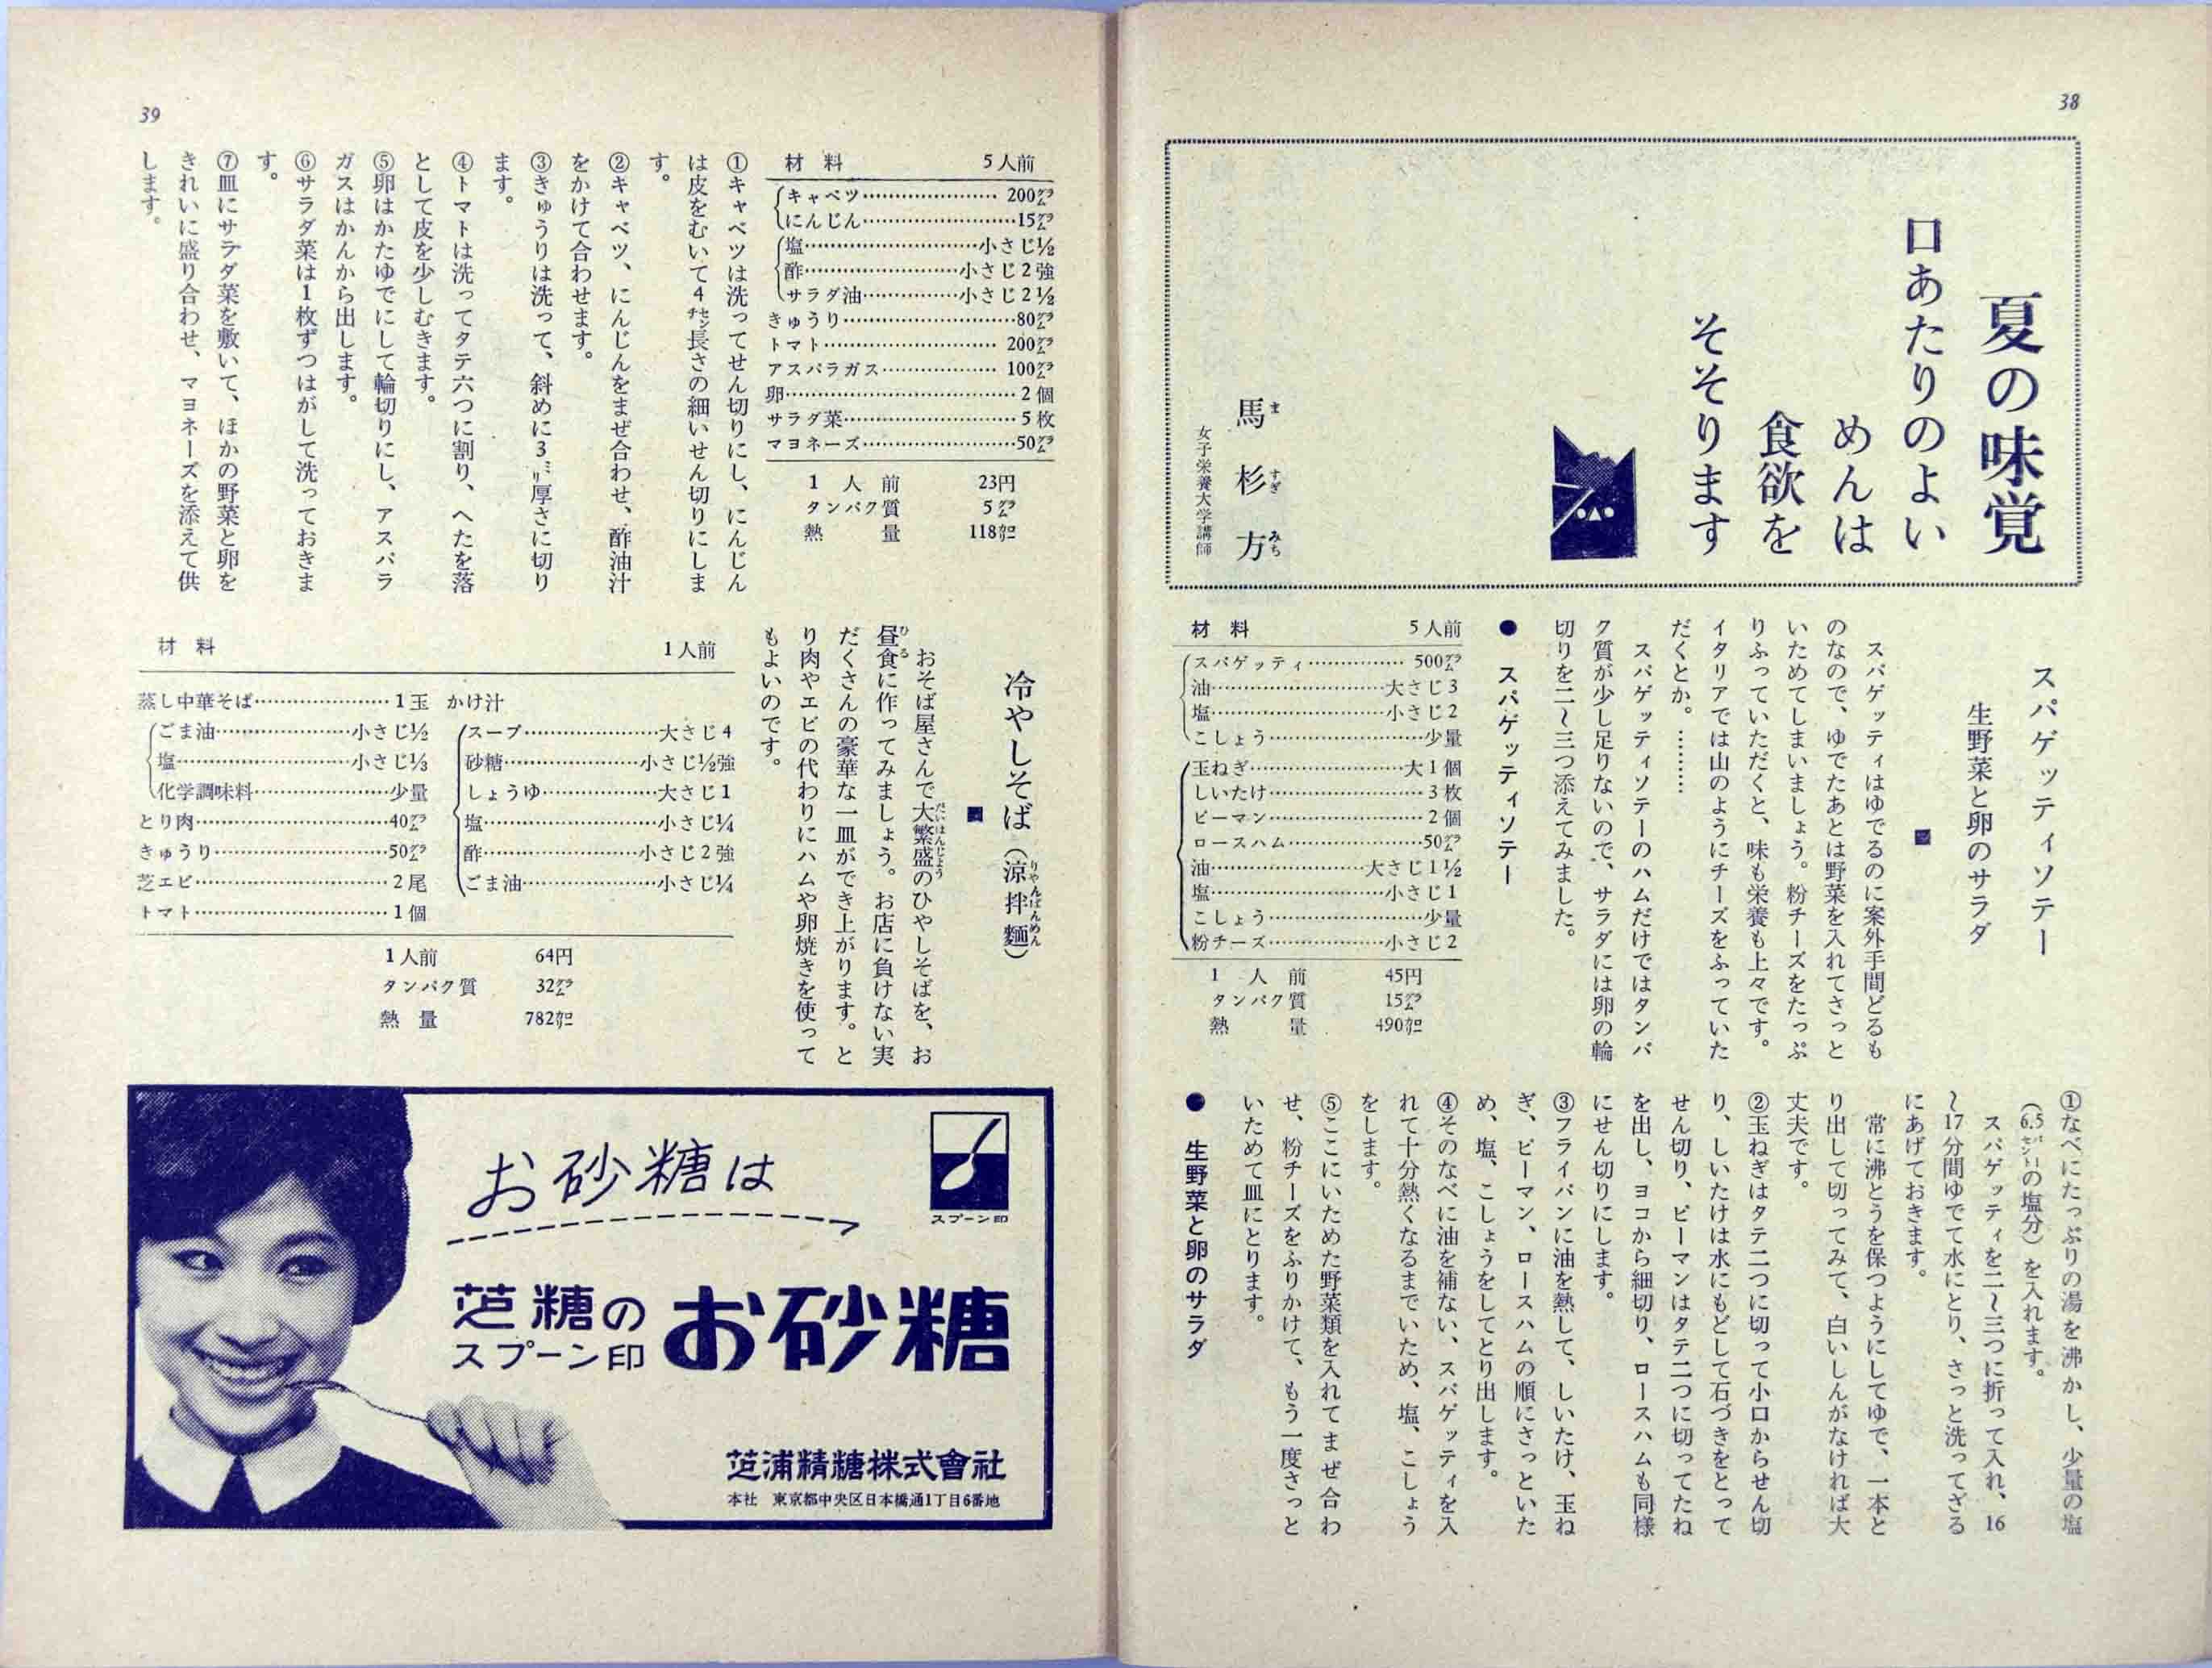 38
夏の味覚
口あたりのよい
めんは
食欲を
そそります
馬杉方
ますぎみち
女子栄養大学講師
スパゲッティソテー
生野菜と卵のサラダ
■
スパゲッティはゆでるのに案外手間どるも
のなので、ゆでたあとは野菜を入れてさっと
いためてしまいましょう。粉チーズをたっぷ
りふっていただくと、味も栄養も上々です。
イタリアでは山のようにチーズをふっていた
だくとか。………
スパゲッティソテーのハムだけではタンパ
ク質が少し足りないので、サラダには卵の輪
切りを二〜三つ添えてみました。
● スパゲッティソテー
材料 5人前
スパゲッティ…………… 500グラム
油……………………大さじ3
塩……………………小さじ2
こしょう……………………少量
玉ねぎ……………………大1個
しいたけ……………………3枚
ピーマン……………………2個
ロースハム…………………50グラム
油……………………大さじ1½
塩……………………小さじ1
こしょう……………………少量
粉チーズ………………小さじ2
1人前 45円
タンパク質 15グラム
熱量 490カロリー
①なべにたっぷりの湯を沸かし、少量の塩
（6.5パーセントの塩分）を入れます。
スパゲッティを二〜三つに折って入れ、16
〜17分間ゆでて水にとり、さっと洗ってざる
にあげておきます。
常に沸とうを保つようにしてゆで、一本と
り出して切ってみて、白いしんがなければ大
丈夫です。
②玉ねぎはタテ二つに切って小口からせん切
り、しいたけは水にもどして石づきをとって
せん切り、ピーマンはタテ二つに切ってたね
を出し、ヨコから細切り、ロースハムも同様
にせん切りにします。
③フライパンに油を熱して、しいたけ、玉ね
ぎ、ピーマン、ロースハムの順にさっといた
め、塩、こしょうをしてとり出します。
④そのなべに油を補ない、スパゲッティを入
れて十分熱くなるまでいため、塩、こしょう
をします。
⑤ここにいためた野菜類を入れてまぜ合わ
せ、粉チーズをふりかけて、もう一度さっと
いためて皿にとります。
● 生野菜と卵のサラダ
39
材料 5人前
キャベツ………………… 200グラム
にんじん……………………15グラム
塩………………………小さじ½
酢……………………小さじ2強
サラダ油……………小さじ2½
きゅうり………………………80グラム
トマト……………………… 200グラム
アスパラガス………………… 100グラム
卵…………………………………2個
サラダ菜………………………5枚
マヨネーズ……………………50グラム
1人前 23円
タンパク質 5グラム
熱量 118カロリー
①キャベツは洗ってせん切りにし、にんじん
は皮をむいて4センチ長さの細いせん切りにしま
す。
②キャベツ、にんじんをまぜ合わせ、酢油汁
をかけて合わせます。
③きゅうりは洗って、斜めに3ミリ厚さに切り
ます。
④トマトは洗ってタテ六つに割り、へたを落
として皮を少しむきます。
⑤卵はかたゆでにして輪切りにし、アスパラ
ガスはかんから出します。
⑥サラダ菜は1枚ずつはがして洗っておきま
す。
⑦皿にサラダ菜を敷いて、ほかの野菜と卵を
きれいに盛り合わせ、マヨネーズを添えて供
します。
冷やしそば（涼拌麺）
りゃんばんめん
■
おそば屋さんで大繁盛のひやしそばを、お
だいはんじょう
昼食に作ってみましょう。お店に負けない実
ひる
だくさんの豪華な一皿ができ上がります。と
り肉やエビの代わりにハムや卵焼きを使って
もよいのです。
材料 1人前
蒸し中華そば…………………1玉
ごま油…………………小さじ½
塩………………………小さじ⅓
化学調味料…………………少量
とり肉…………………………40グラム
きゅうり………………………50グラム
芝エビ…………………………2尾
トマト…………………………1個
かけ汁
スープ…………………大さじ4
砂糖…………………小さじ½強
しょうゆ………………大さじ1
塩………………………小さじ¼
酢……………………小さじ2強
ごま油…………………小さじ¼
1人前 64円
タンパク質 32グラム
熱量 782カロリー
スプーン印
お砂糖は
芝糖の
スプーン印
お砂糖
芝浦精糖株式會社
本社 東京都中央区日本橋通1丁目6番地